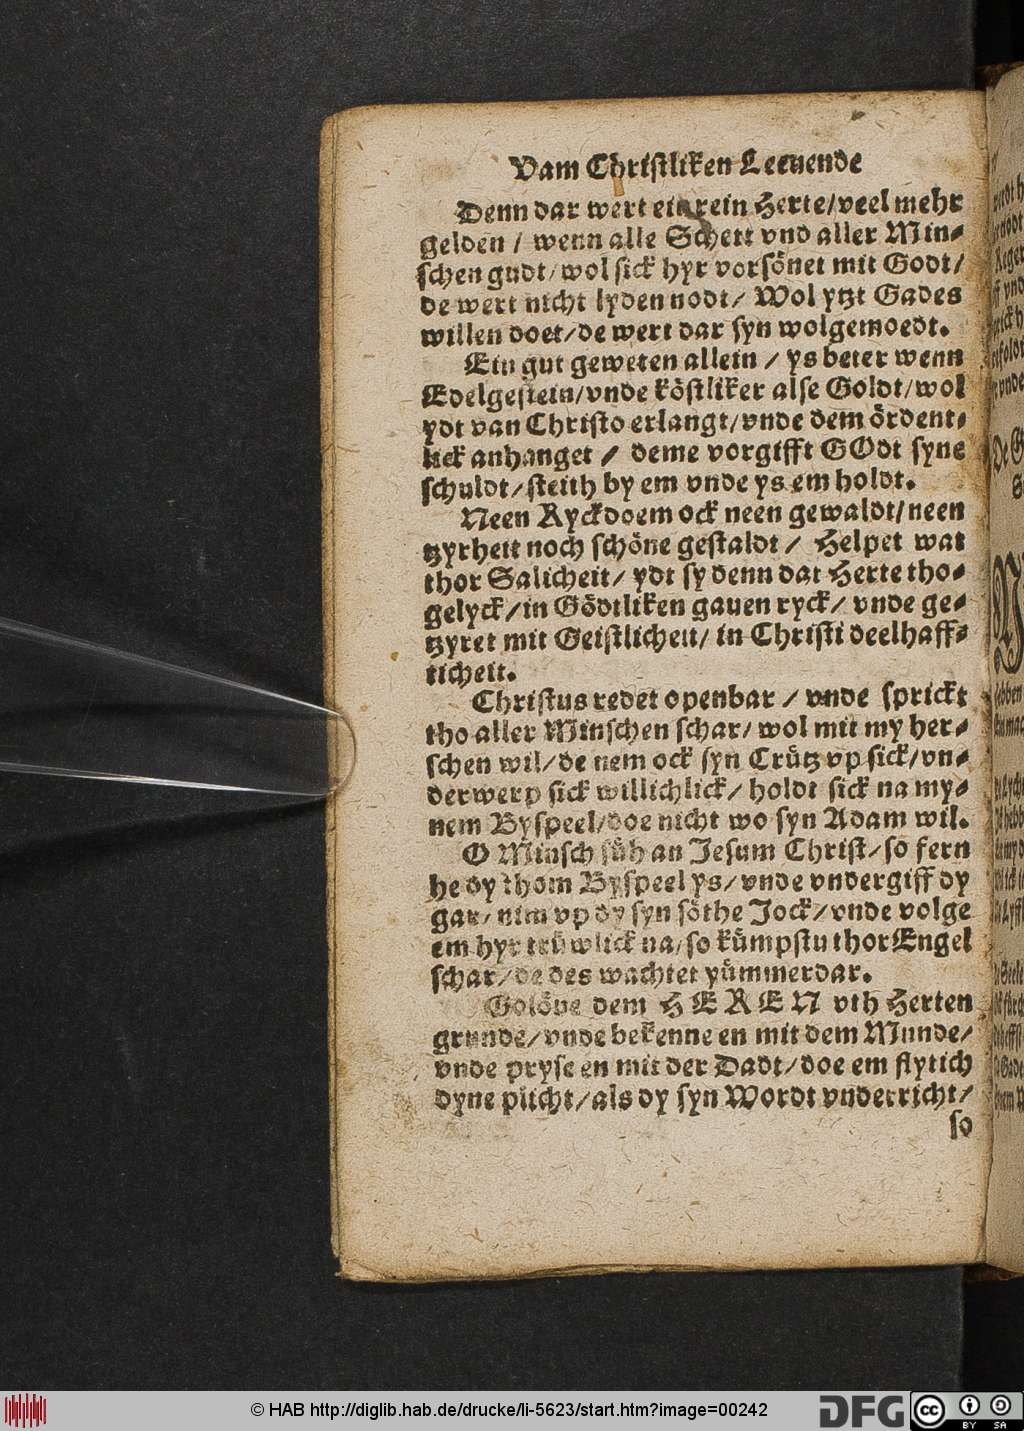 Vam Christliken Leeuende
Denn dar wert ein rein Herte/veel mehr
gelden / wenn alle Schett vnd aller Min-
schen gudt/wol sick hyr vorsönet mit Godt/
de wert nicht lyden nodt/ Wol ytzt Gades
willen doet/de wert dar syn wolgemoedt.
Ein gut geweten allein / ys beter wenn
Edelgestein/vnde köstliker alse Goldt/wol
ydt van Christo erlangt/vnde dem ördent-
lick anhanget / deme vorgifft GOdt syne
schuldt/steith by em vnde ys em holdt.
Neen Ryckdoem ock neen gewaldt/neen
tzyrheit noch schöne gestaldt / Helpet wat
thor Salicheit/ ydt sy denn dat Herte tho-
gelyck/in Gödtliken gauen ryck/ vnde ge-
tzyret mit Geistlicheit/ in Christi deelhaff-
ticheit.
Christus redet openbar / vnde sprickt
tho aller Minschen schar/ wol mit my her-
schen wil/de nem ock syn Crütz vp sick/vn-
derwerp sick willichlick/ holdt sick na my-
nem Byspeel/doe nicht wo syn Adam wil.
O Minsch süh an Jesum Christ/so fern
he dy thom Byspeel ys/vnde vndergiff dy
gar/nim vp dy syn söthe Jock/vnde volge
em hyr trüwlick na/so kümpstu thor Engel
schar/de des wachtet yümmerdar.
Golöve dem HEREN vth Herten
grunde/vnde bekenne en mit dem Munde/
vnde pryse en mit der Dadt/doe em flytich
dyne plicht/als dy syn Wordt vnderricht/
so
© HAB http://diglib.hab.de/drucke/li-5623/start.htm?image=00242
DFG
cc
BY SA